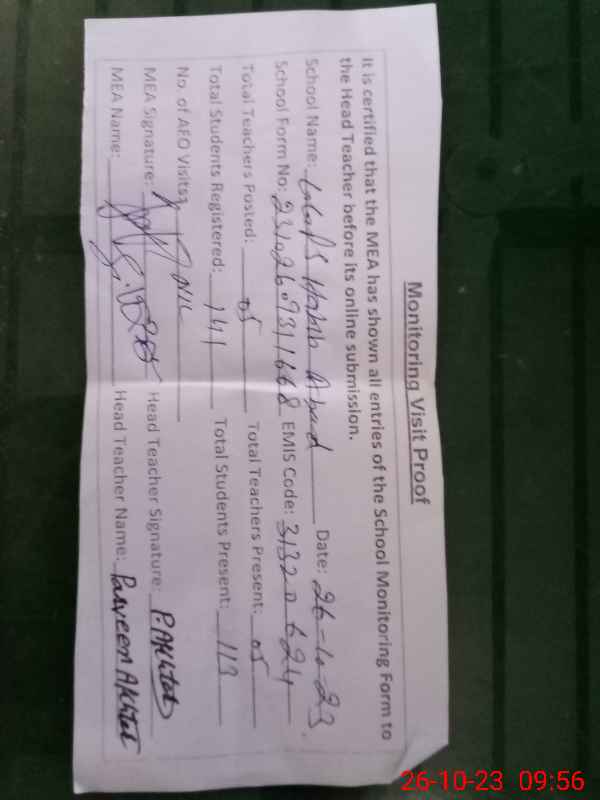 Monitoring Visit Proof
It is certified that the MEA has shown all entries of the School Monitoring Form to
the Head Teacher before its online submission.
School Name: Habib Abad Date: 26-10-23
School Form No: EMIS Code: 31320624
Total Teachers Posted: 05 Total Teachers Present: 05
Total Students Registered: 141 Total Students Present: 113
No. of AEO Visits: NIL
MEA Signature: Head Teacher Signature: P.Akhtar
MEA Name: Head Teacher Name: Parveen Akhtar
26-10-23 09:56